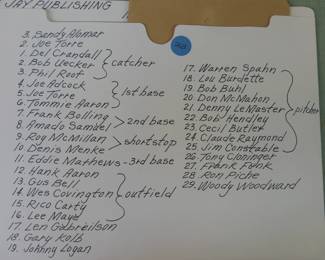 JAY PUBLISHING
3. Sandy Alomar
2. Joe Torre
1. Del Crandall
2. Bob Uecker
3. Phil Roof
catcher
4. Joe Adcock
5. Joe Torre
6. Tommie Aaron
1st base
7. Frank Bolling
8. Amado Samuel
2nd base
9. Roy McMillan
10. Denis Menke
shortstop
11. Eddie Mathews - 3rd base
12. Hank Aaron
13. Gus Bell
14. Wes Covington
15. Rico Carty
16. Lee Maye
outfield
17. Len Gabrielson
18. Gary Kolb
19. Johnny Logan
17. Warren Spahn
18. Lou Burdette
19. Bob Buhl
20. Don McMahon
21. Denny LeMaster
22. Bob Hendley
23. Cecil Butler
24. Claude Raymond
25. Jim Constable
pitcher
26. Tony Cloninger
27. Frank Funk
28. Ron Piche
29. Woody Woodward